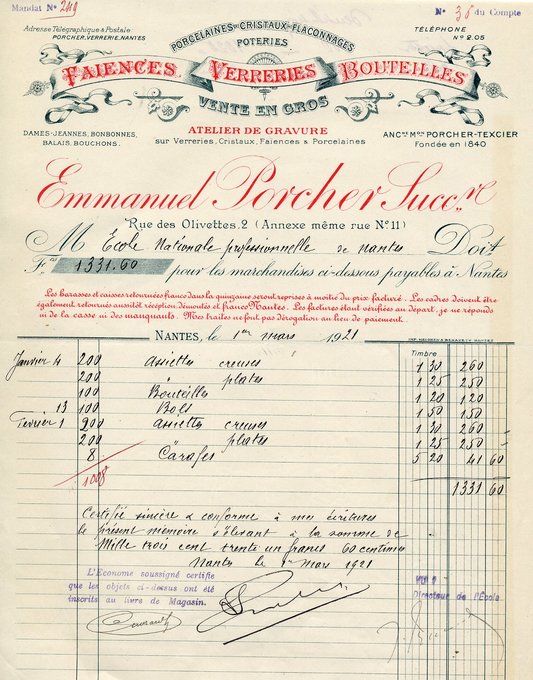 Mandat N° 249
N° 36 du Compte
Adresse Télégraphique & Postale:
PORCHER, VERRERIE, NANTES
TÉLÉPHONE
N° 2.05
PORCELAINES-CRISTAUX-FLACONNAGES
POTERIES
FAIENCES VERRERIES BOUTEILLES
VENTE EN GROS
DAMES-JEANNES, BONBONNES,
BALAIS, BOUCHONS.
ATELIER DE GRAVURE
sur Verreries, Cristaux, Faïences & Porcelaines
ANCne Mson PORCHER-TEXCIER
Fondée en 1840
Emmanuel Porcher Succ.re
Rue des Olivettes, 2 (Annexe même rue N° 11)
M École Nationale professionnelle de Nantes Doit
F.cs 1331.60 pour les marchandises ci-dessous payables à Nantes
Les harasses et caisses retournées franco dans la quinzaine seront reprises à moitié du prix facturé. Les cadres doivent être
également retournés aussitôt réception démontés et franco Nantes. Les factures étant vérifiées au départ, je ne réponds
ni de la casse ni des manquants. Mes traites ne font pas dérogation au lieu de paiement.
NANTES, le 1er mars 1921
Timbre
Janvier 4 200 Assiettes creuses 1 30 260
200 " plates 1 25 250
100 Bouteilles 1 20 120
13 100 Bols 1 50 150
Février 1 200 Assiettes creuses 1 30 260
200 " plates 1 25 250
8 Carafes 5 20 41 60
1008
1331 60
Certifié sincère & conforme à mes écritures
le présent mémoire s'élevant à la somme de
Mille trois cent trente un francs 60 centimes
Nantes le 1er Mars 1921
L'Econome soussigné certifie
que les objets ci-dessus ont été
inscrits au livre de Magasin.
Directeur de l'École